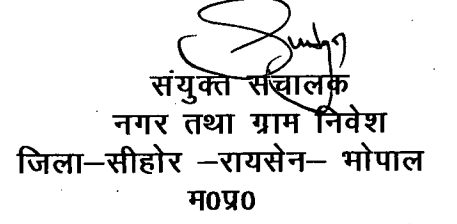 संयुक्त संचालक
नगर तथा ग्राम निवेश
जिला–सीहोर –रायसेन– भोपाल
म0प्र0